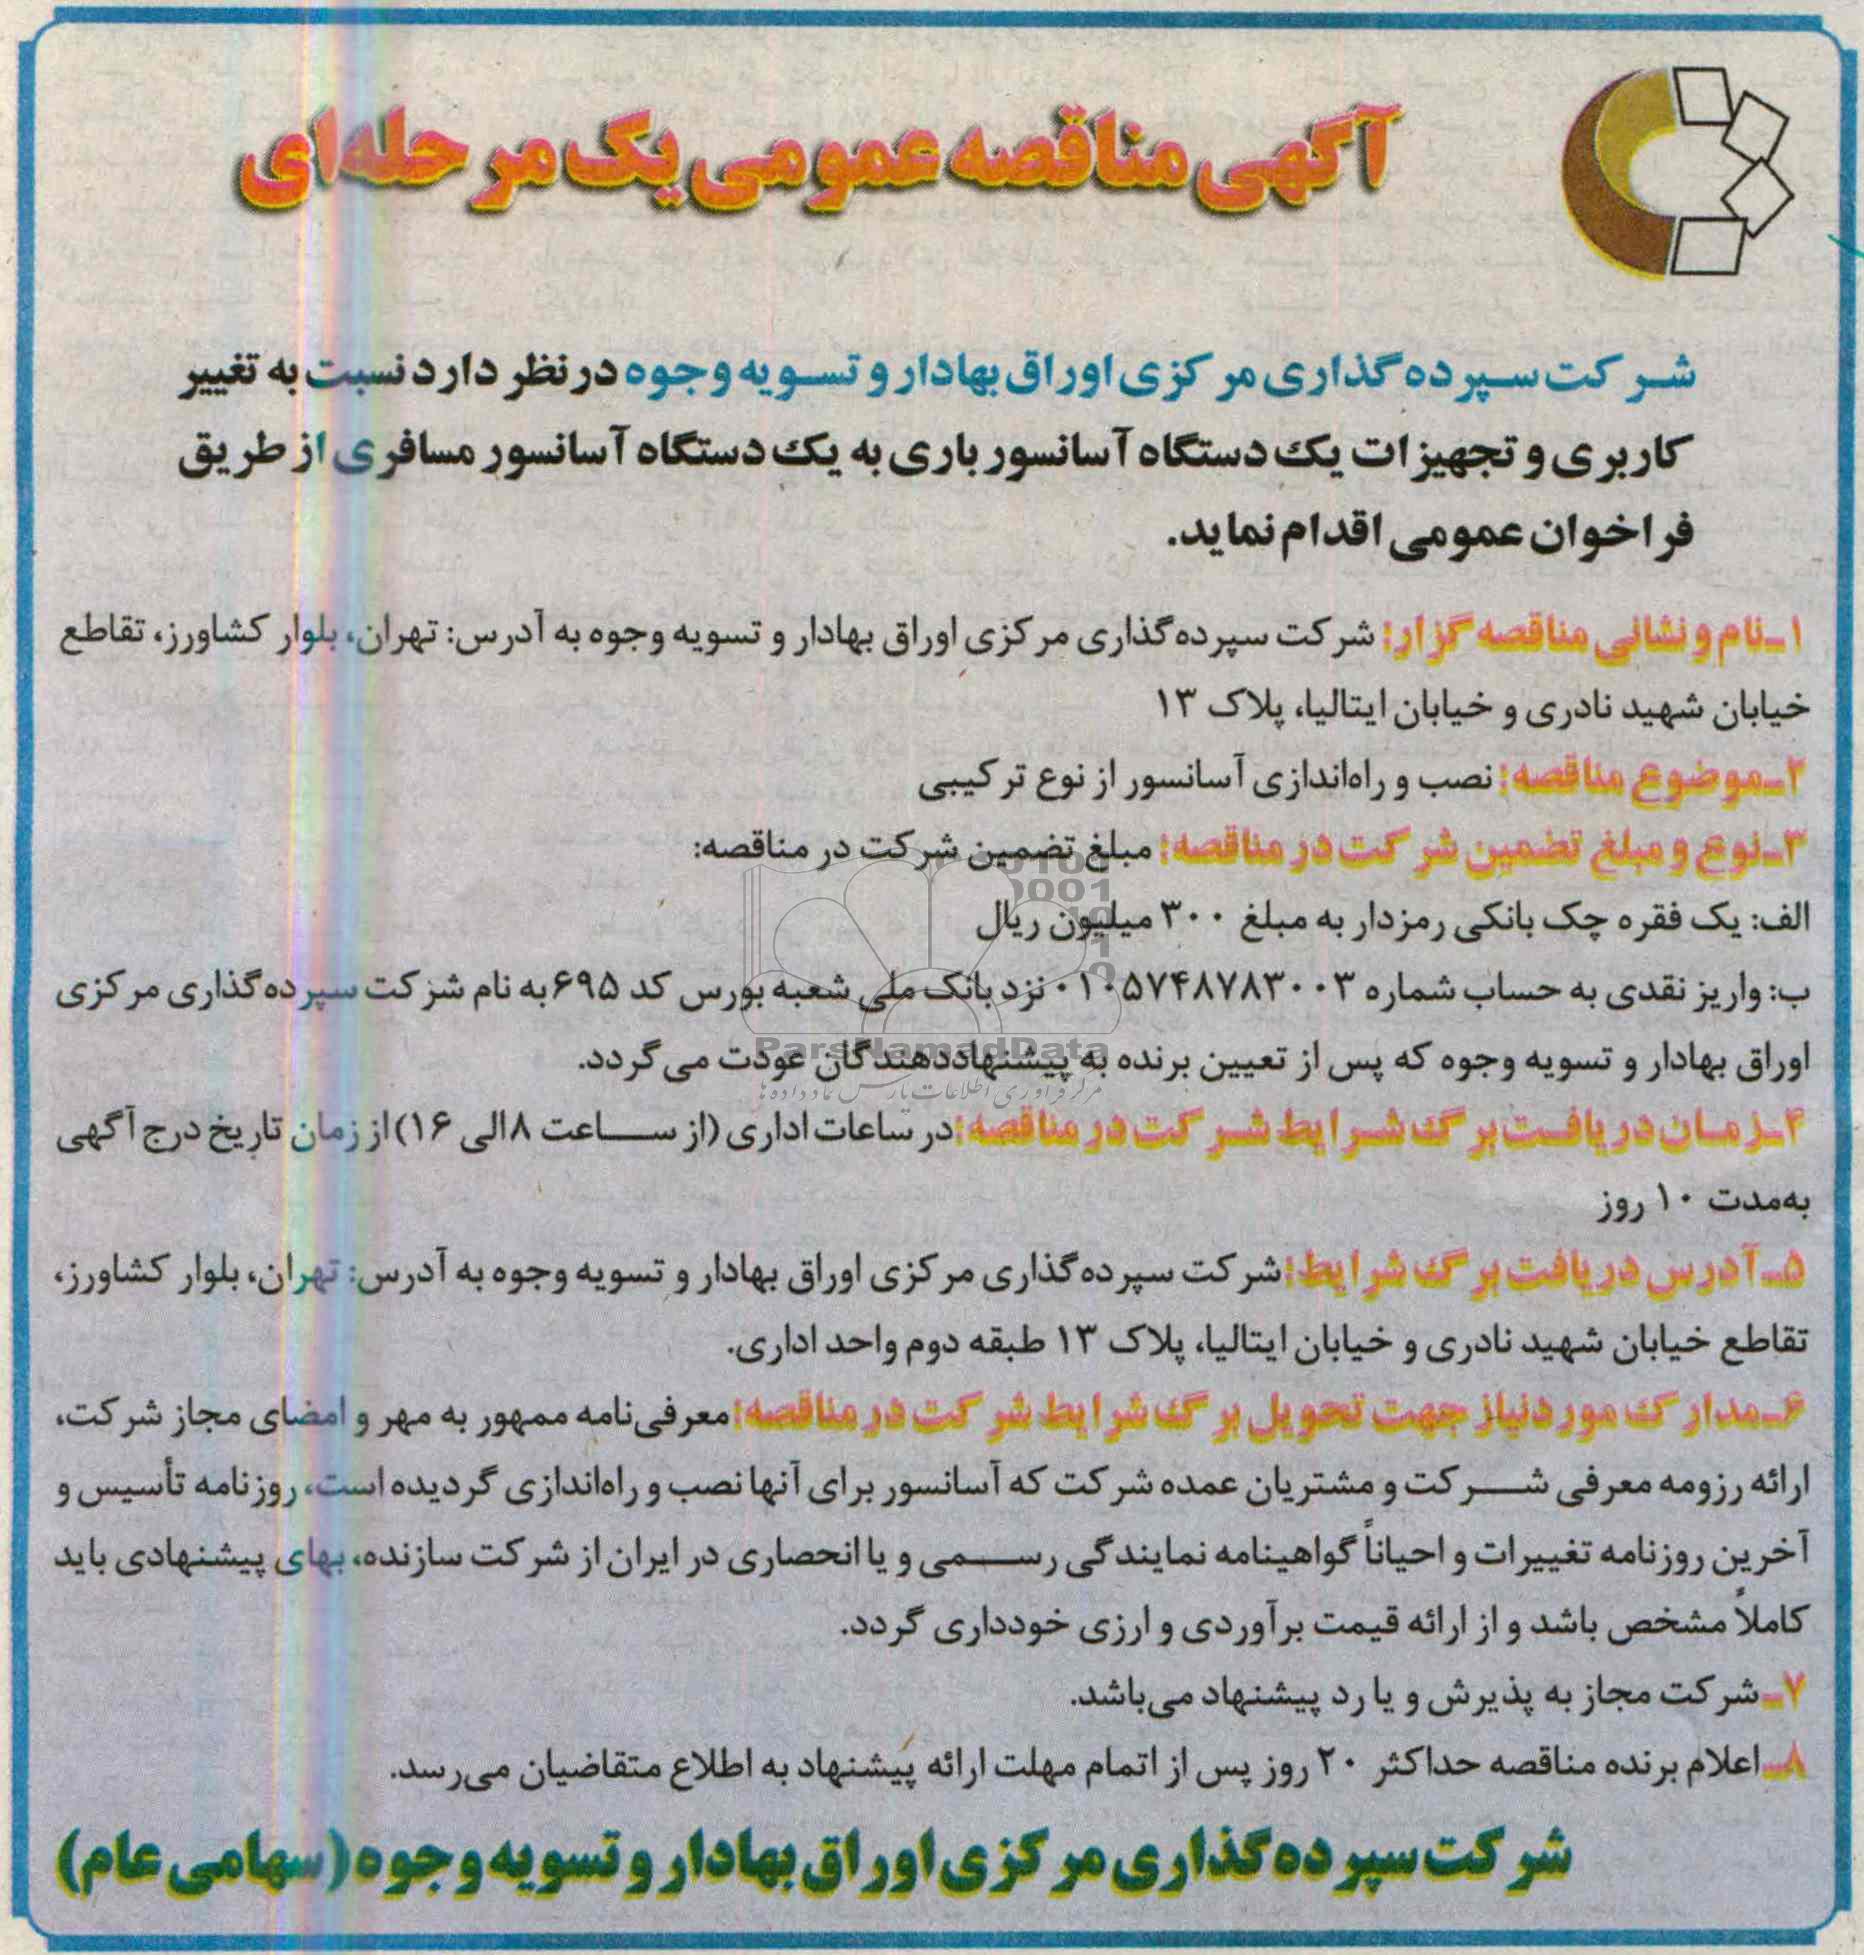 آگهی مناقصه عمومی یک مرحله‌ای
شرکت سپرده گذاری مرکزی اوراق بهادار و تسویه وجوه در نظر دارد نسبت به تغییر
کاربری و تجهیزات یک دستگاه آسانسور باری به یک دستگاه آسانسور مسافری از طریق
فراخوان عمومی اقدام نماید.
۱ـ نام و نشانی مناقصه گزار: شرکت سپرده‌گذاری مرکزی اوراق بهادار و تسویه وجوه به آدرس: تهران، بلوار کشاورز، تقاطع
خیابان شهید نادری و خیابان ایتالیا، پلاک ۱۳
۲ـ موضوع مناقصه: نصب و راه‌اندازی آسانسور از نوع ترکیبی
۳ـ نوع و مبلغ تضمین شرکت در مناقصه: مبلغ تضمین شرکت در مناقصه:
الف: یک فقره چک بانکی رمزدار به مبلغ ۳۰۰ میلیون ریال
ب: واریز نقدی به حساب شماره ۰۱۰۵۷۴۸۷۸۳۰۰۳ نزد بانک ملی شعبه بورس کد ۶۹۵ به نام شرکت سپرده‌گذاری مرکزی
اوراق بهادار و تسویه وجوه که پس از تعیین برنده به پیشنهاددهندگان عودت می‌گردد.
۴ـ زمان دریافت برگ شرایط شرکت در مناقصه: در ساعات اداری (از ساعت ۸ الی ۱۶) از زمان تاریخ درج آگهی
به‌مدت ۱۰ روز
۵ـ آدرس دریافت برگ شرایط: شرکت سپرده‌گذاری مرکزی اوراق بهادار و تسویه وجوه به آدرس: تهران، بلوار کشاورز،
تقاطع خیابان شهید نادری و خیابان ایتالیا، پلاک ۱۳ طبقه دوم واحد اداری.
۶ـ مدارک موردنیاز جهت تحویل برگ شرایط شرکت در مناقصه: معرفی‌نامه ممهور به مهر و امضای مجاز شرکت،
ارائه رزومه معرفی شرکت و مشتریان عمده شرکت که آسانسور برای آنها نصب و راه‌اندازی گردیده است، روزنامه تأسیس و
آخرین روزنامه تغییرات و احیاناً گواهینامه نمایندگی رسمی و یا انحصاری در ایران از شرکت سازنده، بهای پیشنهادی باید
کاملاً مشخص باشد و از ارائه قیمت برآوردی و ارزی خودداری گردد.
۷ـ شرکت مجاز به پذیرش و یا رد پیشنهاد می‌باشد.
۸ـ اعلام برنده مناقصه حداکثر ۲۰ روز پس از اتمام مهلت ارائه پیشنهاد به اطلاع متقاضیان می‌رسد.
شرکت سپرده گذاری مرکزی اوراق بهادار و تسویه وجوه (سهامی عام)
ParsNamadData
مرکز فرآوری اطلاعات پارس نماد داده‌ها